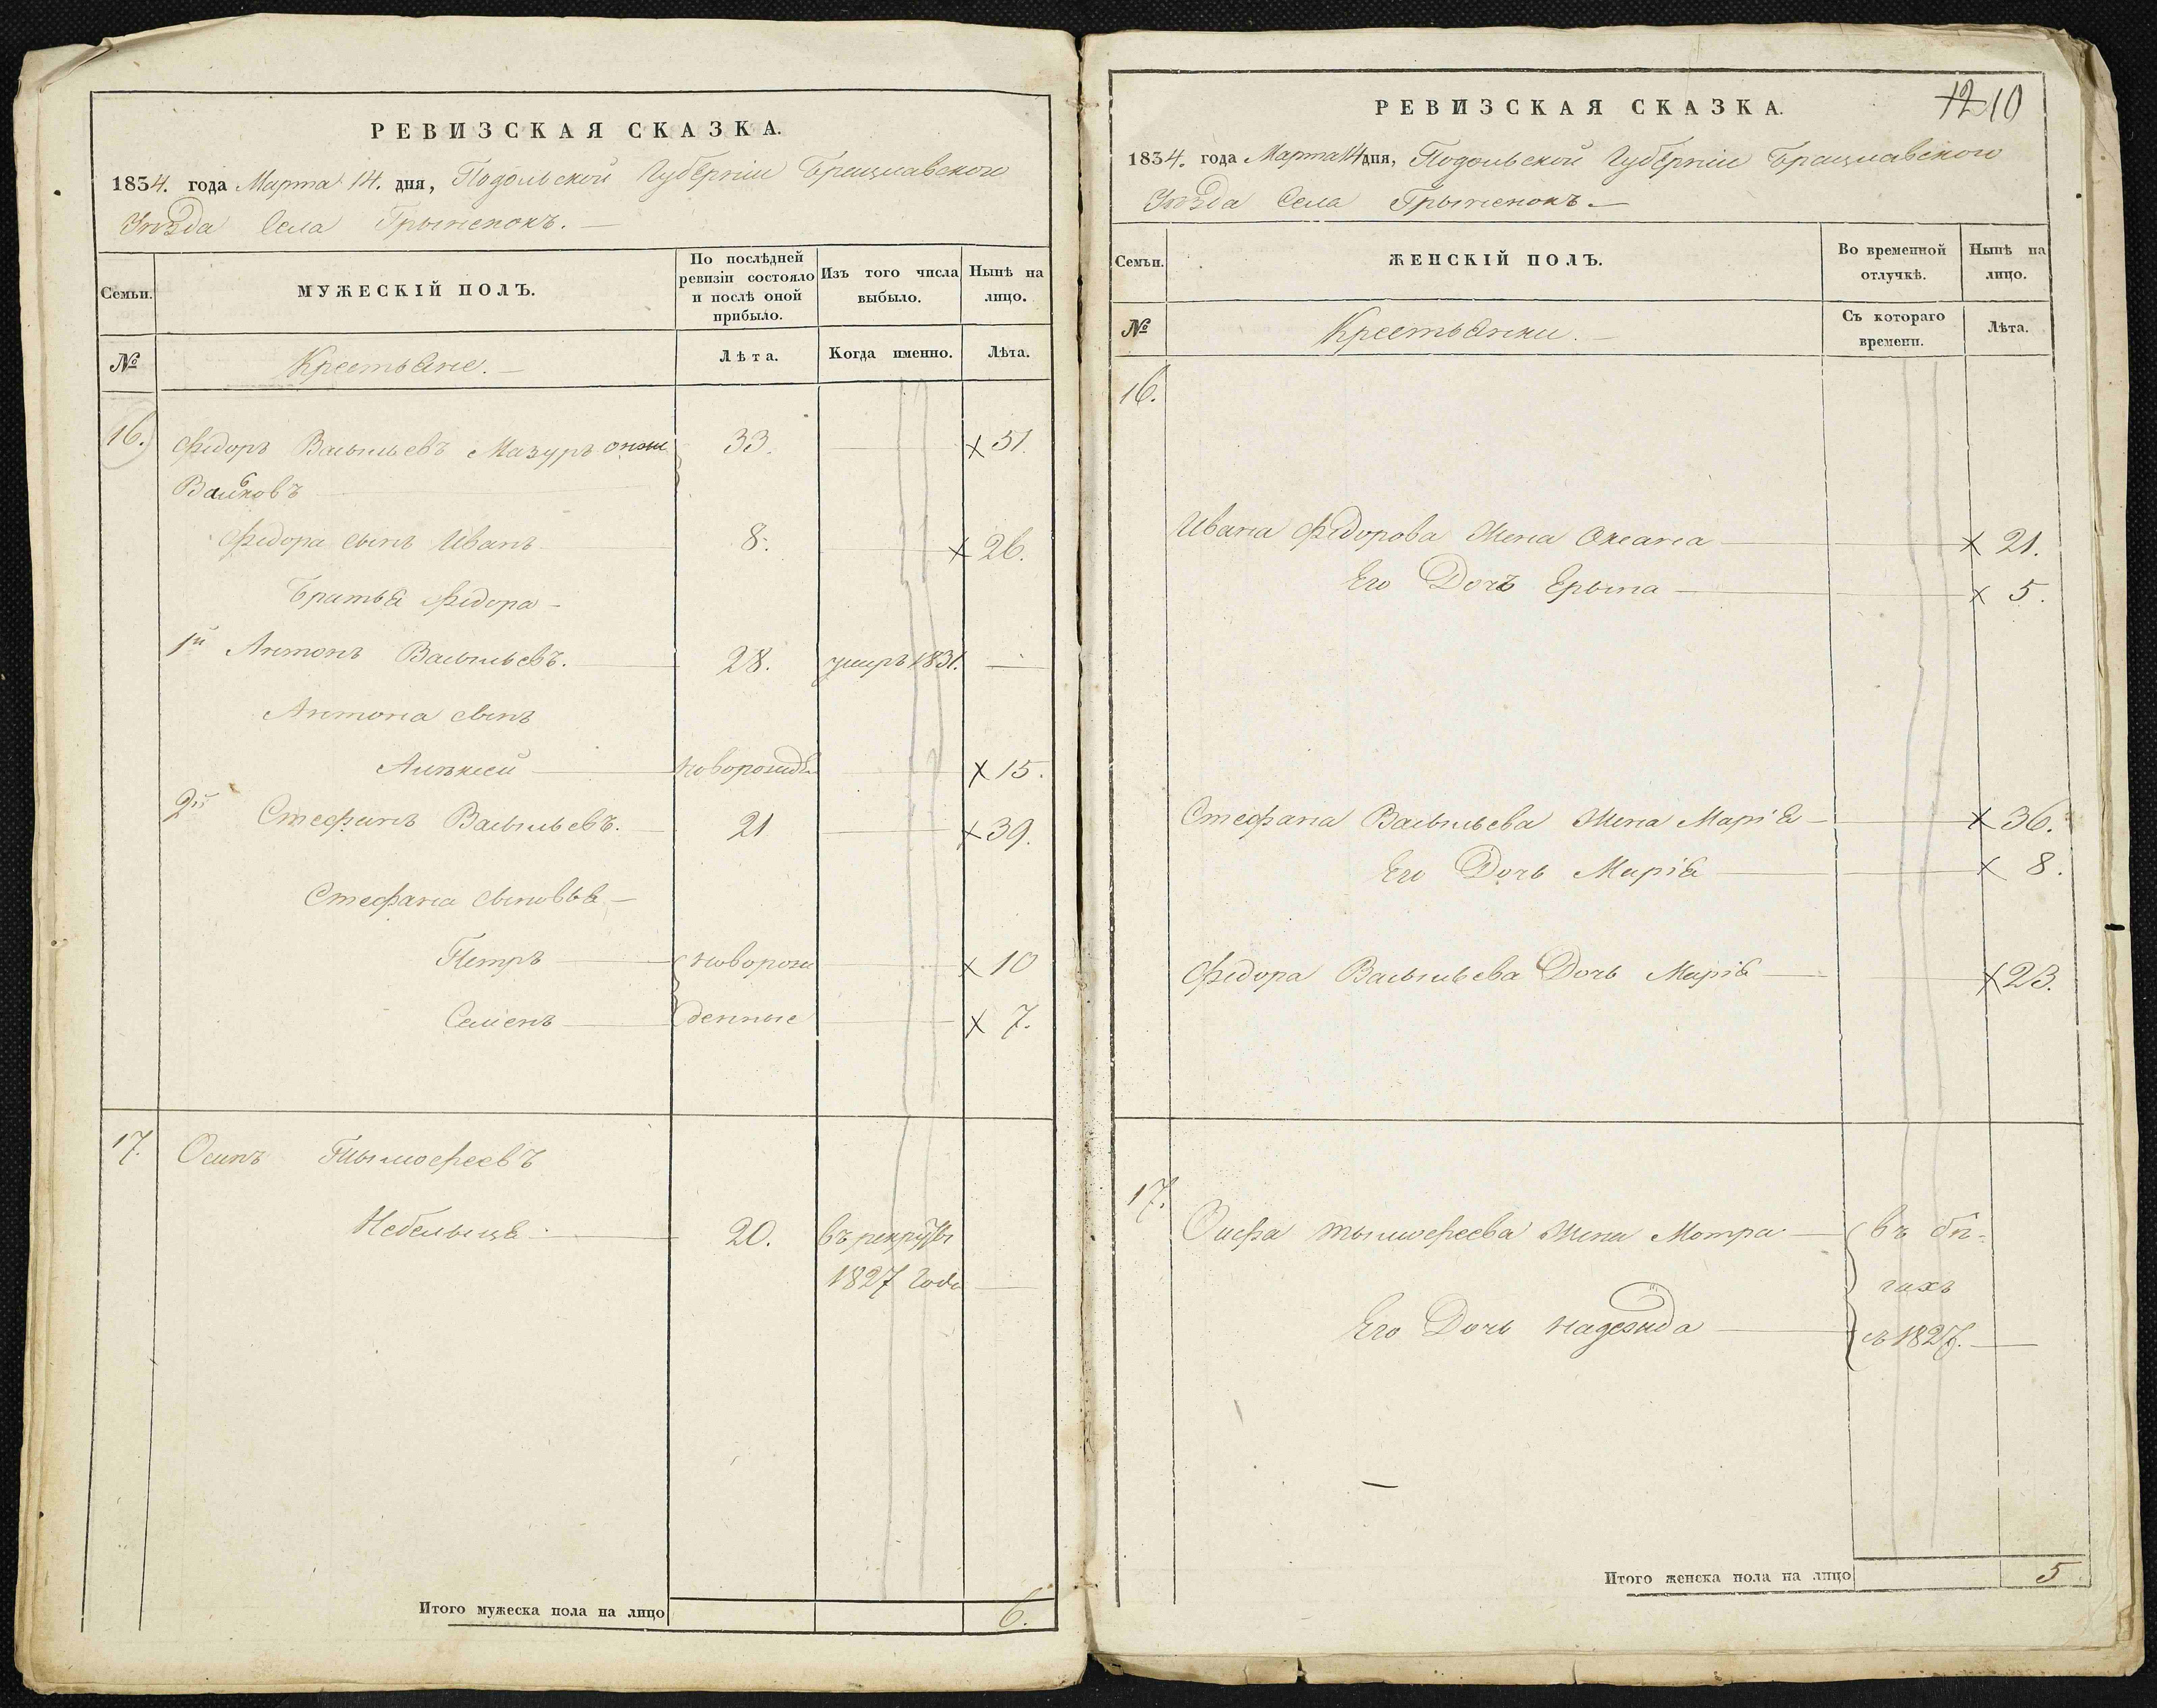 РЕВИЗСКАЯ СКАЗКА.
1834. года Марта 14. дня, Подольской Губерніи Брацлавского
Уѣзда Села Грыненокъ.
Семьи.
МУЖЕСКІЙ ПОЛЪ.
По послѣдней
ревизіи состояло
и послѣ оной
прибыло.
Изъ того числа
выбыло.
Нынѣ на
лицо.
№
Крестьяне.
Лѣта.
Когда именно.
Лѣта.
16. Фідоръ Васильевъ Мазуръ онже 33. × 51.
Фідора сынъ Иванъ 8. × 26.
Братья Фідора
1й Антонъ Васильевъ. 28. умиръ 1831.
Антона сынъ
Алѣксей новорожд × 15.
2й Стефанъ Васильевъ. 21 × 39.
Стефана сыновья
Петръ новорож × 10
Семенъ денные × 7.
17. Осипъ Тымофеевъ
Небелыця 20. въ рекруты
1827 года
Итого мужеска пола на лицо 6.
РЕВИЗСКАЯ СКАЗКА.
12 10
1834. года Марта 14 дня, Подольской Губерніи Брацлавского
Уѣзда Села Грыненокъ.
Семьи.
ЖЕНСКІЙ ПОЛЪ.
Во временной
отлучкѣ.
Нынѣ на
лицо.
№
Крестьянки.
Съ котораго
времени.
Лѣта.
16.
Ивана Фідорова Жена Оксана × 21.
Его Дочъ Ерына × 5.
Стефана Васильева Жена Марія × 36.
Его Дочь Марія × 8.
Фідора Васильева Дочь Марія × 23.
17.
Осифа Тымофеева Жена Мотра въ бѣ-
гахъ
Его Дочь Надежда съ 1827.
Итого женска пола на лицо 5